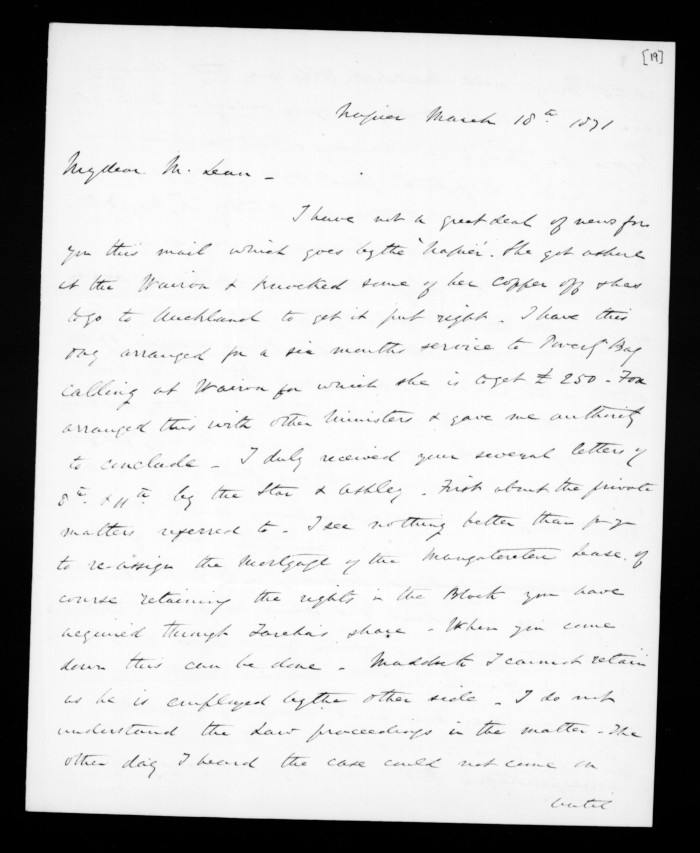 [19]
Napier March 18th 1871
My dear McLean -
I have not a great deal of news for
you this mail which goes by the "Napier". She got ashore
at the Wairoa & knocked some of her copper off & has
to go to Auckland to get it put right. I have this
day arranged for a six months service to Poverty Bay
calling at Wairoa for which she is to get £250 - Fox
arranged this with other Ministers & gave me authority
to conclude - I duly received your several letters of
8th & 11th by the Star & Ashley. First about the private
matters referred to - I see nothing better than for you
to re-assign the Mortgage of the Mangateretere Lease, of
course retaining the rights in the Block you have
acquired through Tareha's share - When you come
down this can be done - I cannot retain
as he is employed by the other side - I do not
understand the Law proceedings in the matter - The
other day I heard the case could not come on
until